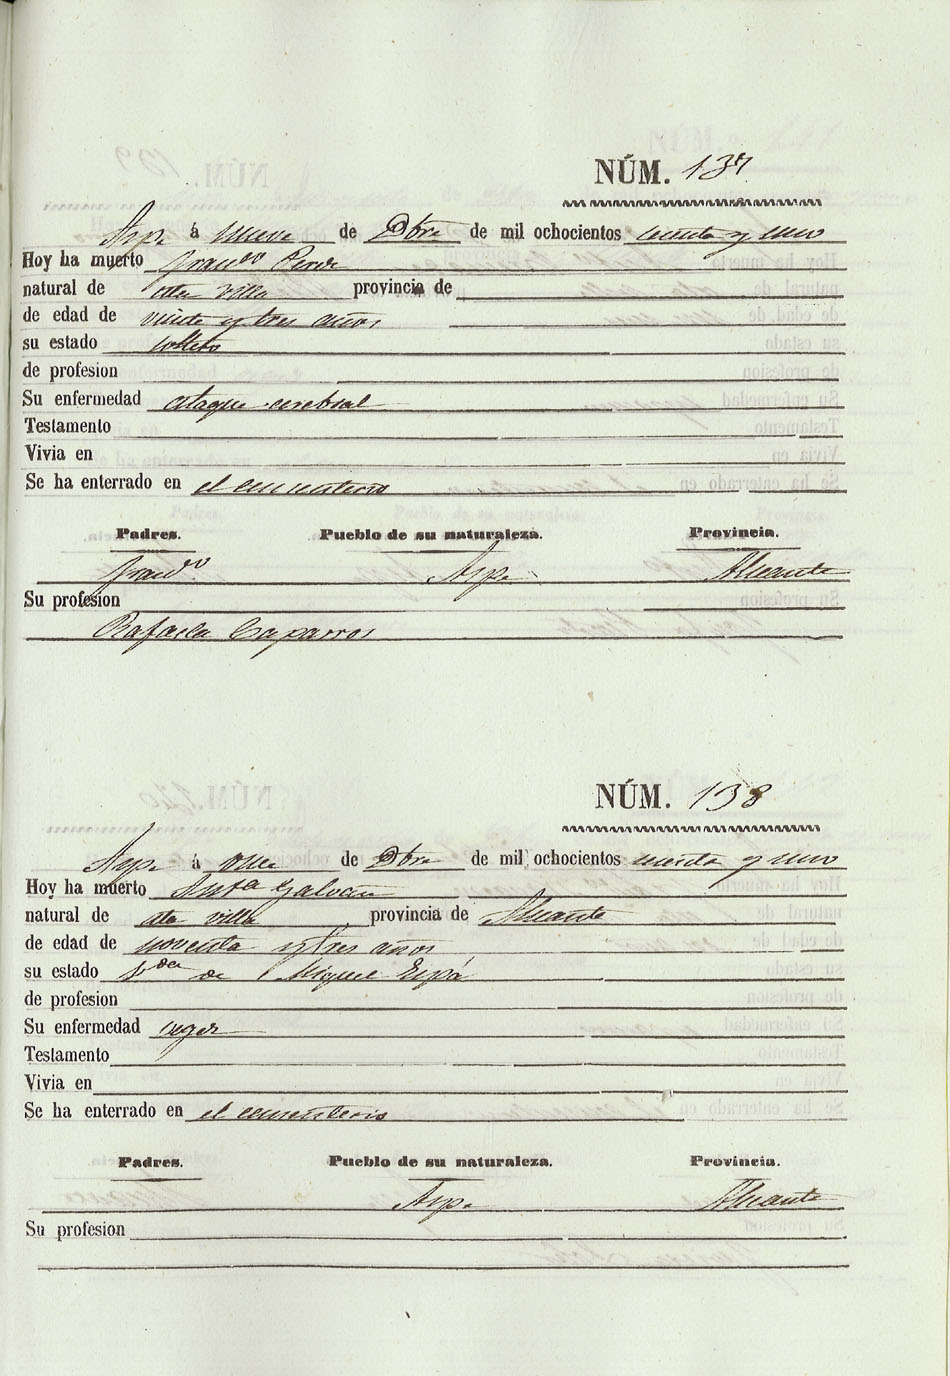 NÚM. 137
Aspe á nueve de Dbre de mil ochocientos sesenta y uno
Hoy ha muerto Fran.co
natural de esta villa provincia de
de edad de veinte y tres años
su estado soltero
de profesion
Su enfermedad ataque cerebral
Testamento
Vivia en
Se ha enterrado en el cementerio
Padres. Pueblo de su naturaleza. Provincia.
Fran.co Aspe Alicante
Su profesion
Rafaela Caparros
NÚM. 138
Aspe á once de Dbre de mil ochocientos sesenta y uno
Hoy ha muerto Ant.a Galvañ
natural de esta villa provincia de Alicante
de edad de noventa y tres años
su estado V.da de Miguel
de profesion
Su enfermedad vegez
Testamento
Vivia en
Se ha enterrado en el cementerio
Padres. Pueblo de su naturaleza. Provincia.
Aspe Alicante
Su profesion